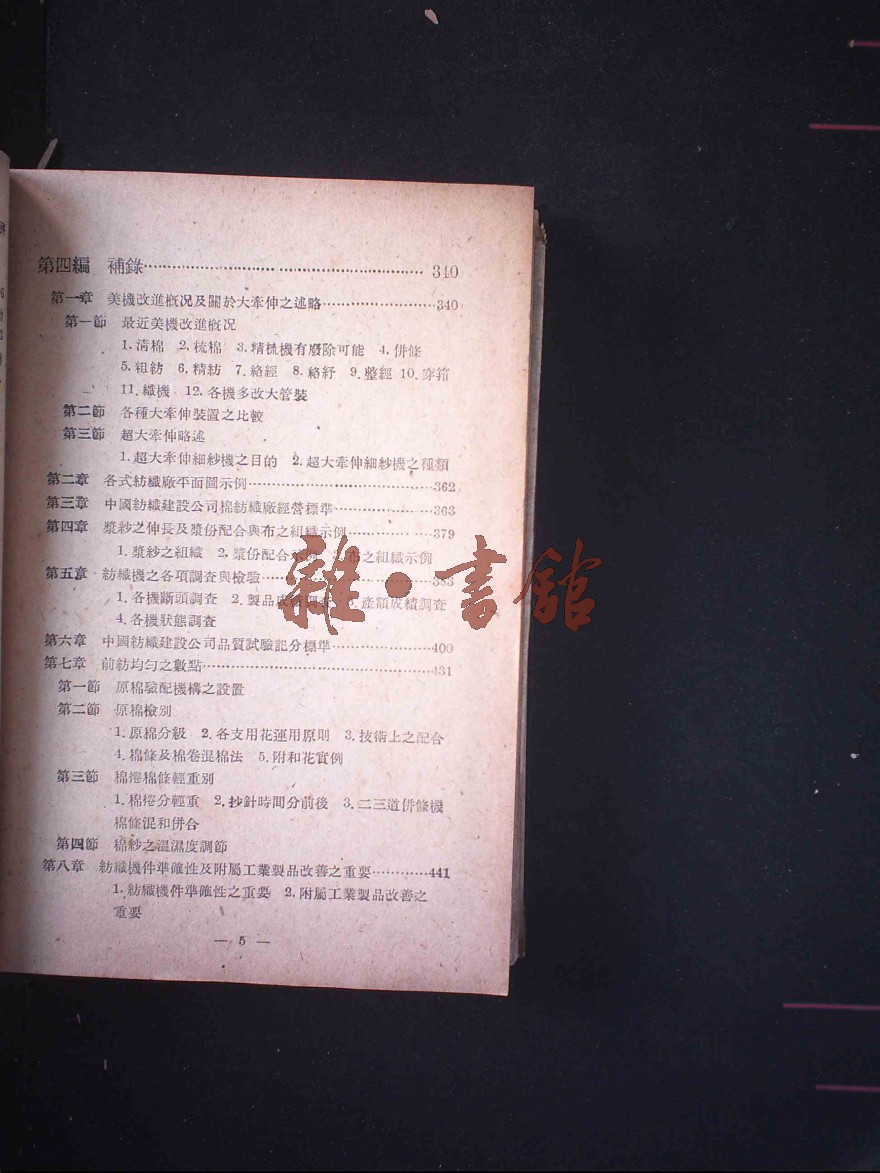 第四編 補錄………………………………………… 340
第一章 美機改進概況及關於大牽伸之述略……………………340
第一節 最近美機改進概況
1.清棉 2.梳棉 3.精梳機有廢除可能 4.併條
5.粗紡 6.精紡 7.絡經 8.絡紓 9.整經 10.穿箝
11.織機 12.各機多改大管裝
第二節 各種大牽伸裝置之比較
第三節 超大牽伸略述
1.超大牽伸細紗機之目的 2.超大牽伸細紗機之種類
第二章 各式紡織廠平面圖示例……………………………362
第三章 中國紡織建設公司棉紡織廠經營標準………………363
第四章 漿紗之伸長及漿份配合與布之組織示例……………379
1.漿紗之組織 2.漿份配合示例 3.布之組織示例
第五章 紡織機之各項調查與檢驗……………………………383
1.各機斷頭調查 2.製品成績調查 3.產額成績調查
4.各機狀態調查
第六章 中國紡織建設公司品質試驗記分標準………………400
第七章 前紡均勻之數點………………………………………431
第一節 原棉驗配機構之設置
第二節 原棉檢別
1.原棉分級 2.各支用花運用原則 3.技術上之配合
4.棉條及棉卷混棉法 5.附和花實例
第三節 棉捲棉條輕重別
1.棉捲分輕重 2.抄針時間分前後 3.二三道併條機
棉條混和併合
第四節 棉紗之溫濕度調節
第八章 紡織機件準確性及附屬工業製品改善之重要…………441
1.紡織機件準確性之重要 2.附屬工業製品改善之
重要
— 5 —
雜·書館